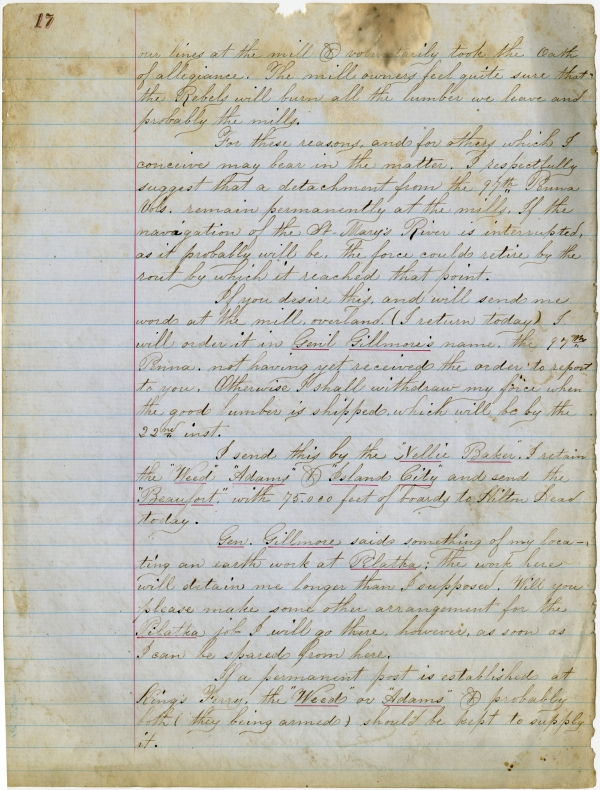 17
our lines at the mill & voluntarily took the Oath
of allegiance. The mill owners feel quite sure that
the Rebels will burn all the lumber we leave and
probably the mills.
For these reasons, and for others which I
conceive may bear in the matter. I respectfully
suggest that a detachment from the 97th Penna
Vols. remain permanently at the mills. If the
navagation of the St. Mary's River is interrupted,
as it probably will be, the force could retire by the
rout by which it reached that point.
If you desire this, and will send me
word at the mill, overland, (I return today) I
will order it in Gen'l Gillmore's name, the 97th
Penna. not having yet received the order to report
to you. Otherwise I shall withdraw my force when
the good lumber is shipped, which will be by the
22nd inst.
I send this by the "Nellie Baker". I retain
the "Weed" "Adams" & "Island City" and send the
"Beaufort" with 75.000 feet of boards to Hilton Head
today.
Gen. Gillmore said something of my loca-
ting an earth work at Pilatka; the work here
will detain me longer than I supposed. Will you
please make some other arrangement for the
Pilatka job I will go there, however, as soon as
I can be spared from here.
If a permanent post is established at
King's Ferry, the "Weed" or "Adams" & probably
both (they being armed) should be kept to supply
it.